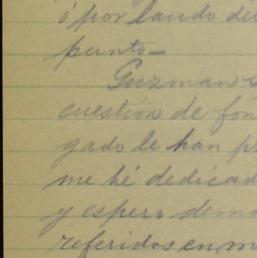 ó por lando di
punto—
Guzman
cuestión de fon
gado le han p
me hé dedicad
y espero demo
referidos en m